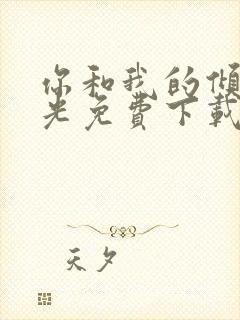 你和我的倾
光免費下載
天夕